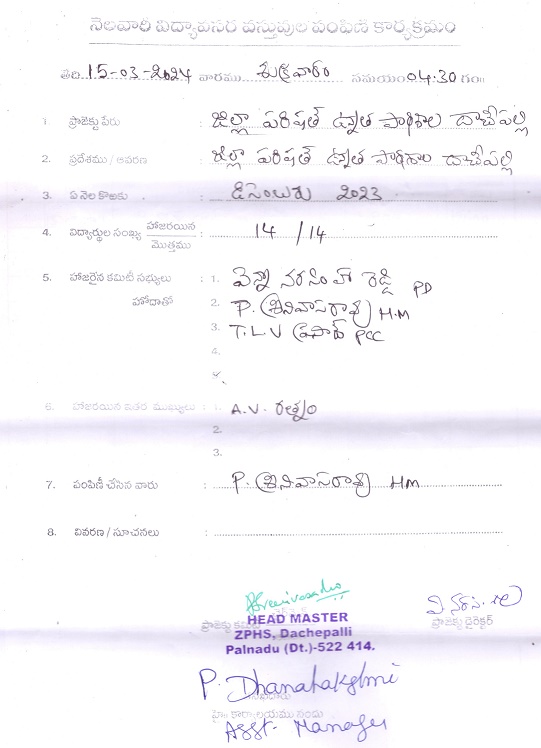 నెలవారి విద్యావసర వస్తువుల పంపిణి కార్యక్రమం
తేది. 15-03-2024 వారము శుక్రవారం సమయం 04:30 గం॥
1. ప్రాజెక్టు పేరు : జిల్లా పరిషత్ ఉన్నత పాఠశాల దాచేపల్లి
2. ప్రదేశము / ఆవరణ : జిల్లా పరిషత్ ఉన్నత పాఠశాల దాచేపల్లి
3. ఏ నెల కొఱకు : డిసెంబరు 2023
4. విద్యార్థుల సంఖ్య హాజరయిన : 14 / 14
మొత్తము
5. హాజరైన కమిటీ సభ్యులు : 1. వెన్నా నరసింహా రెడ్డి PD
హోదాతో 2. P. శ్రీనివాసరావు H.M
3. T.L.V ప్రసాద్ PCC
4.
5.
6. హాజరయిన ఇతర ముఖ్యులు : 1. A.V. రత్నం
2.
3.
7. పంపిణీ చేసిన వారు : P. శ్రీనివాసరావు HM
8. వివరణ / సూచనలు :
ప్రాజెక్టు ప్రాజెక్టు డైరెక్టర్
HEAD MASTER
ZPHS, Dachepalli
Palnadu (Dt.)-522 414.
P. Dhanalakshmi
Asst. Manager